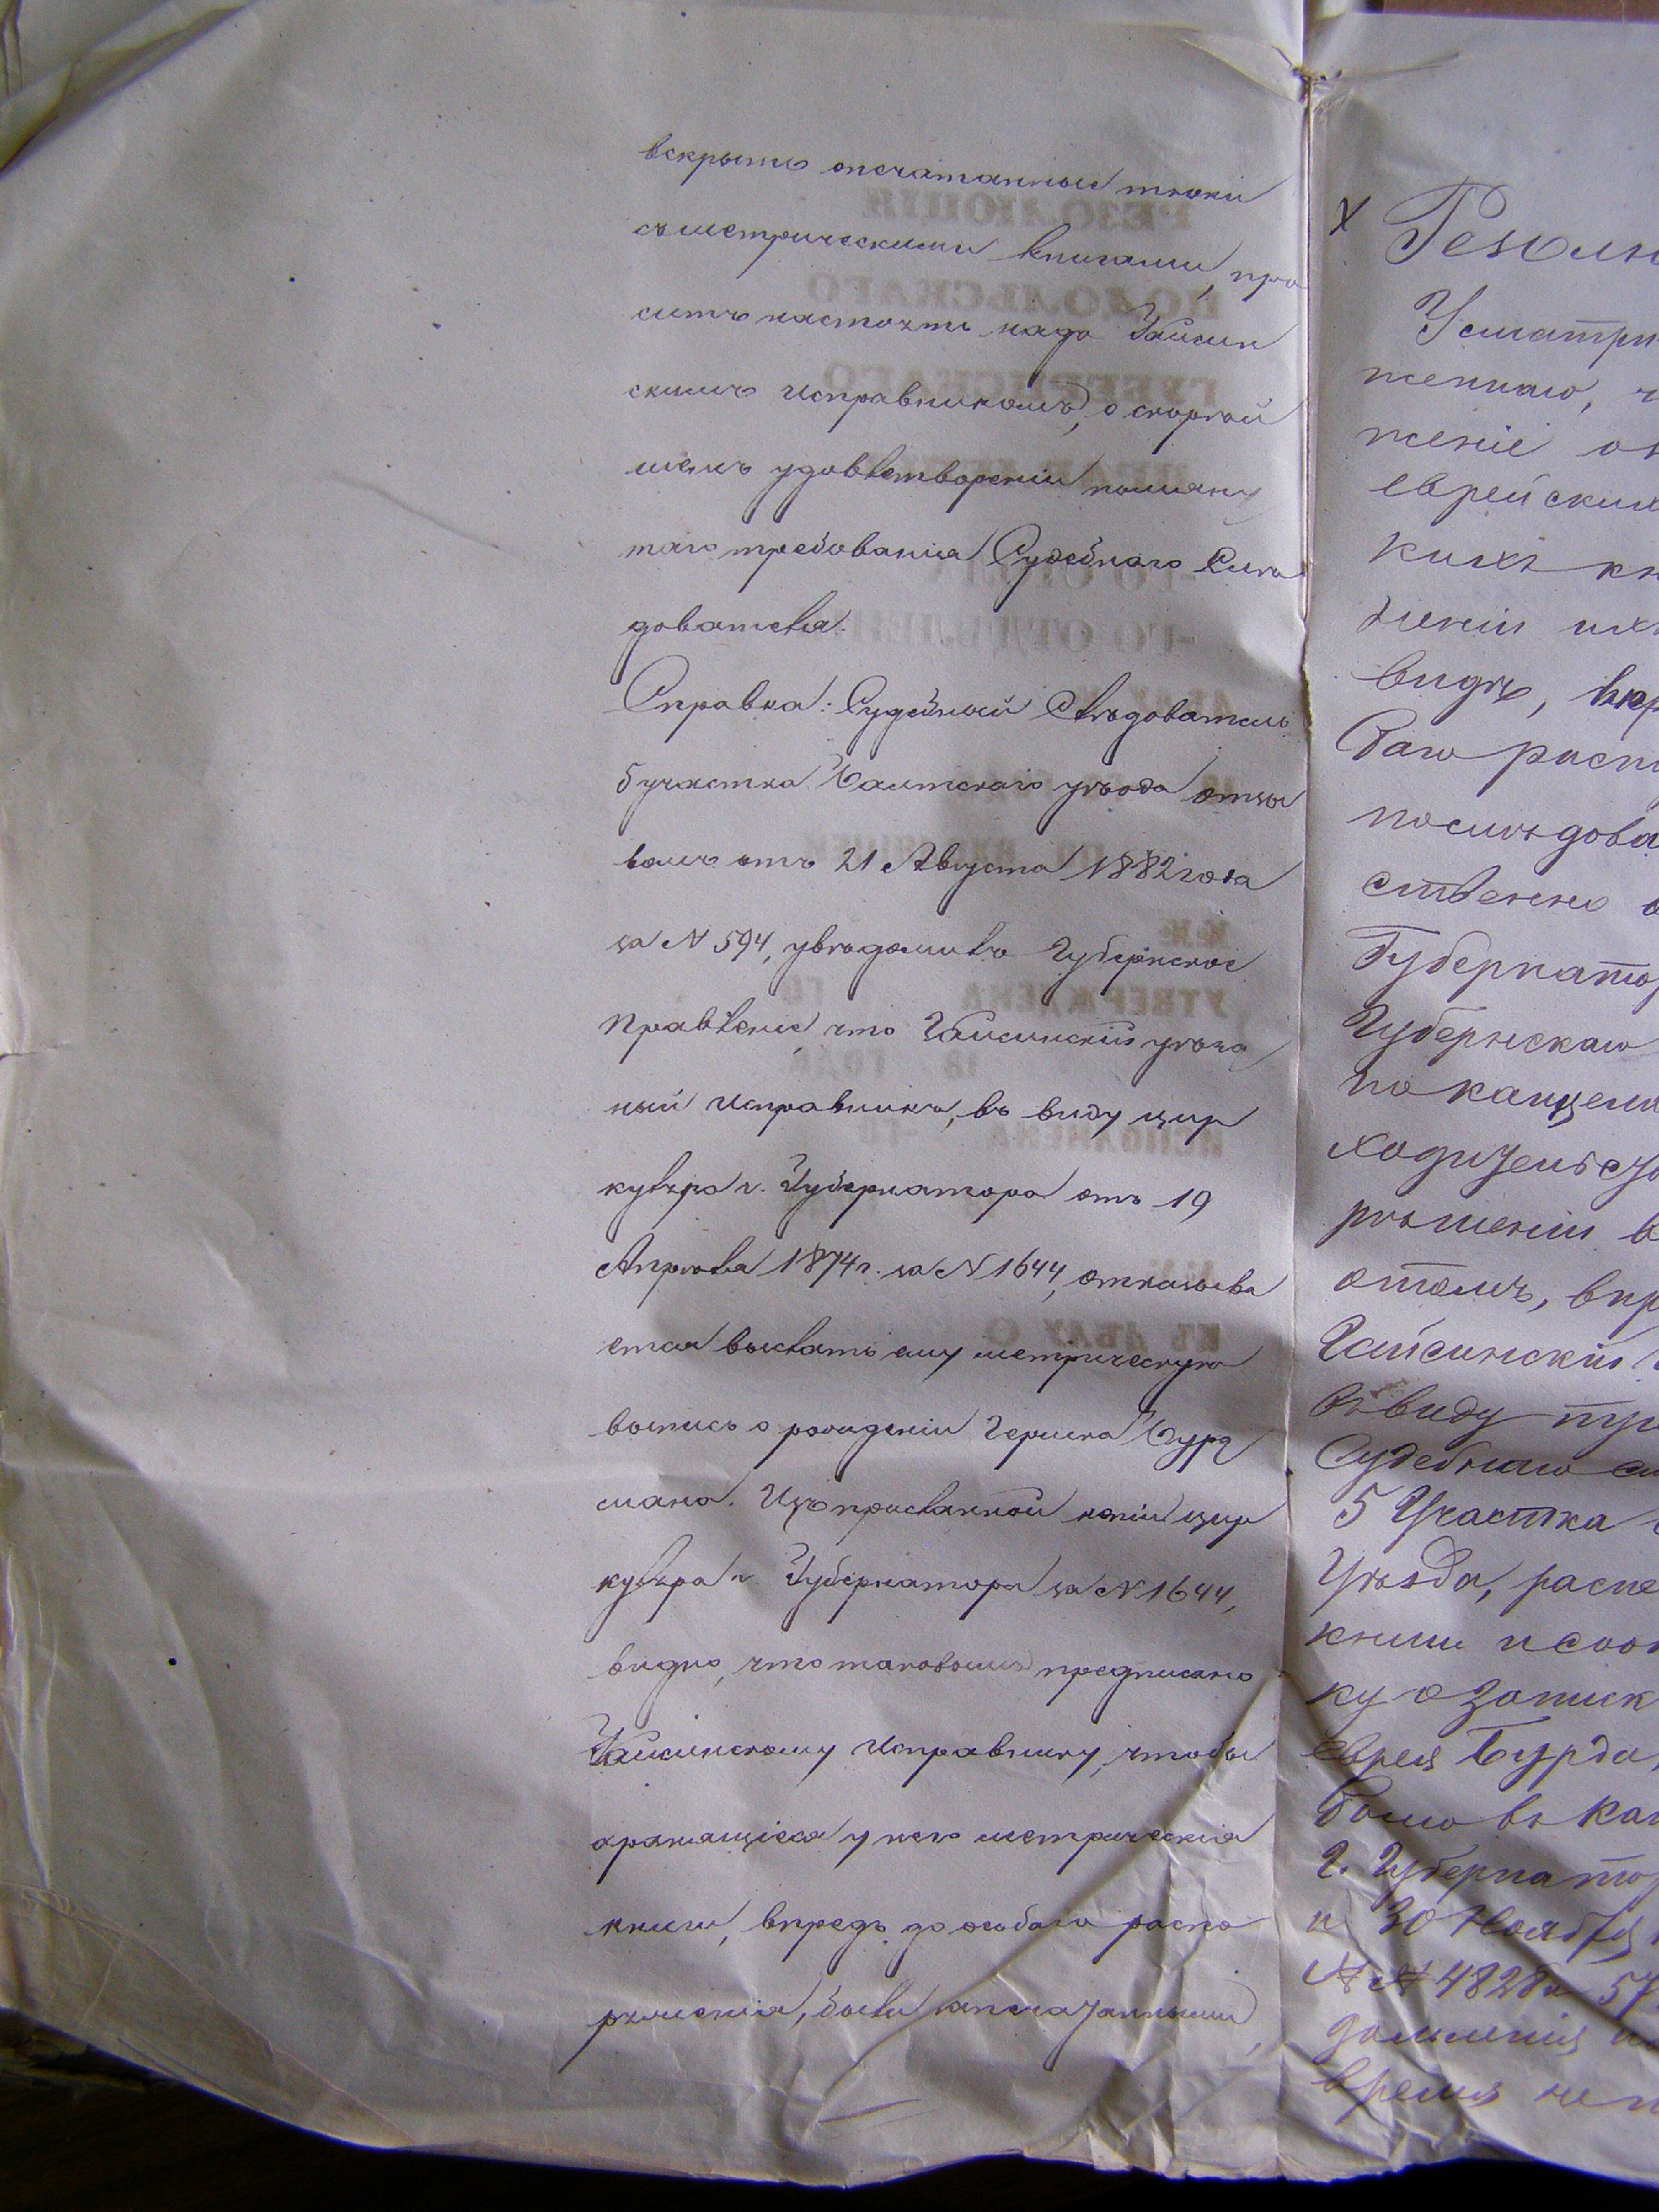 вскрыть опечатанные тюки
съ метрическими книгами, про
ситъ настоять надъ Гайсин
скимъ Исправникомъ, о скорѣй
шемъ удовлетвореніи помяну
таго требованія Судебнаго Слѣ
дователя.
Справка: Судебный Слѣдователь
5 участка Балтскаго уѣзда отзы
вомъ отъ 21 Августа 1882 года
за N 594, увѣдомилъ Губернское
Правленіе, что Гайсинскій уѣзд
ный Исправникъ, въ виду цир
куляра г. Губернатора отъ 19
Апрѣля 1874 г. за N 1644, отказыва
ется выслать ему метрическую
выпись о рожденіи Гершка Бурд
мана. Изъ присланной копіи цир
куляра г. Губернатора за N 1644,
видно, что таковымъ предписано
Гайсинскому Исправнику, чтобы
хранящіеся у него метрическія
книги, впредь до особаго распо
ряженія, были
Х Резолю
Усматри
женнаго, ч
женіе об
еврейских
кихъ кн
неніи ихъ
видѣ, впр
баго расп
послѣдова
ственно о
Губернатор
Губернскаго
по канцеля
рѣшеніи в
этомъ, впр
Гайсинскій
въ виду тре
Судебнаго сл
5 Участка
Уѣзда, распе
книги и сооб
ку о записк
еврея Бурда
было въ кан
Г. Губернатор
и 30 Ноября
N N 4828 и 57
время не п
РЕЗОЛЮЦІЯ
ПОДОЛЬСКАГО
ГУБЕРНСКАГО
-ГО ОТДѢЛЕНІЯ
УТВЕРЖДЕНА ГО
18 ГОДА
ИСПОЛНЕНА -ГО
КЪ ДѢЛУ О